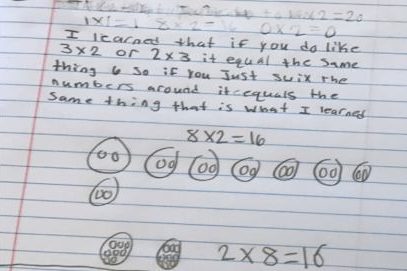 x2=20
1x1=1 8x2=16 0x2=0
I learned that if you do like
3x2 or 2x3 it equal the same
thing 6 so if you Just swix the
numbers around it equals the
same thing that is what I learned
8x2=16
2x8=16